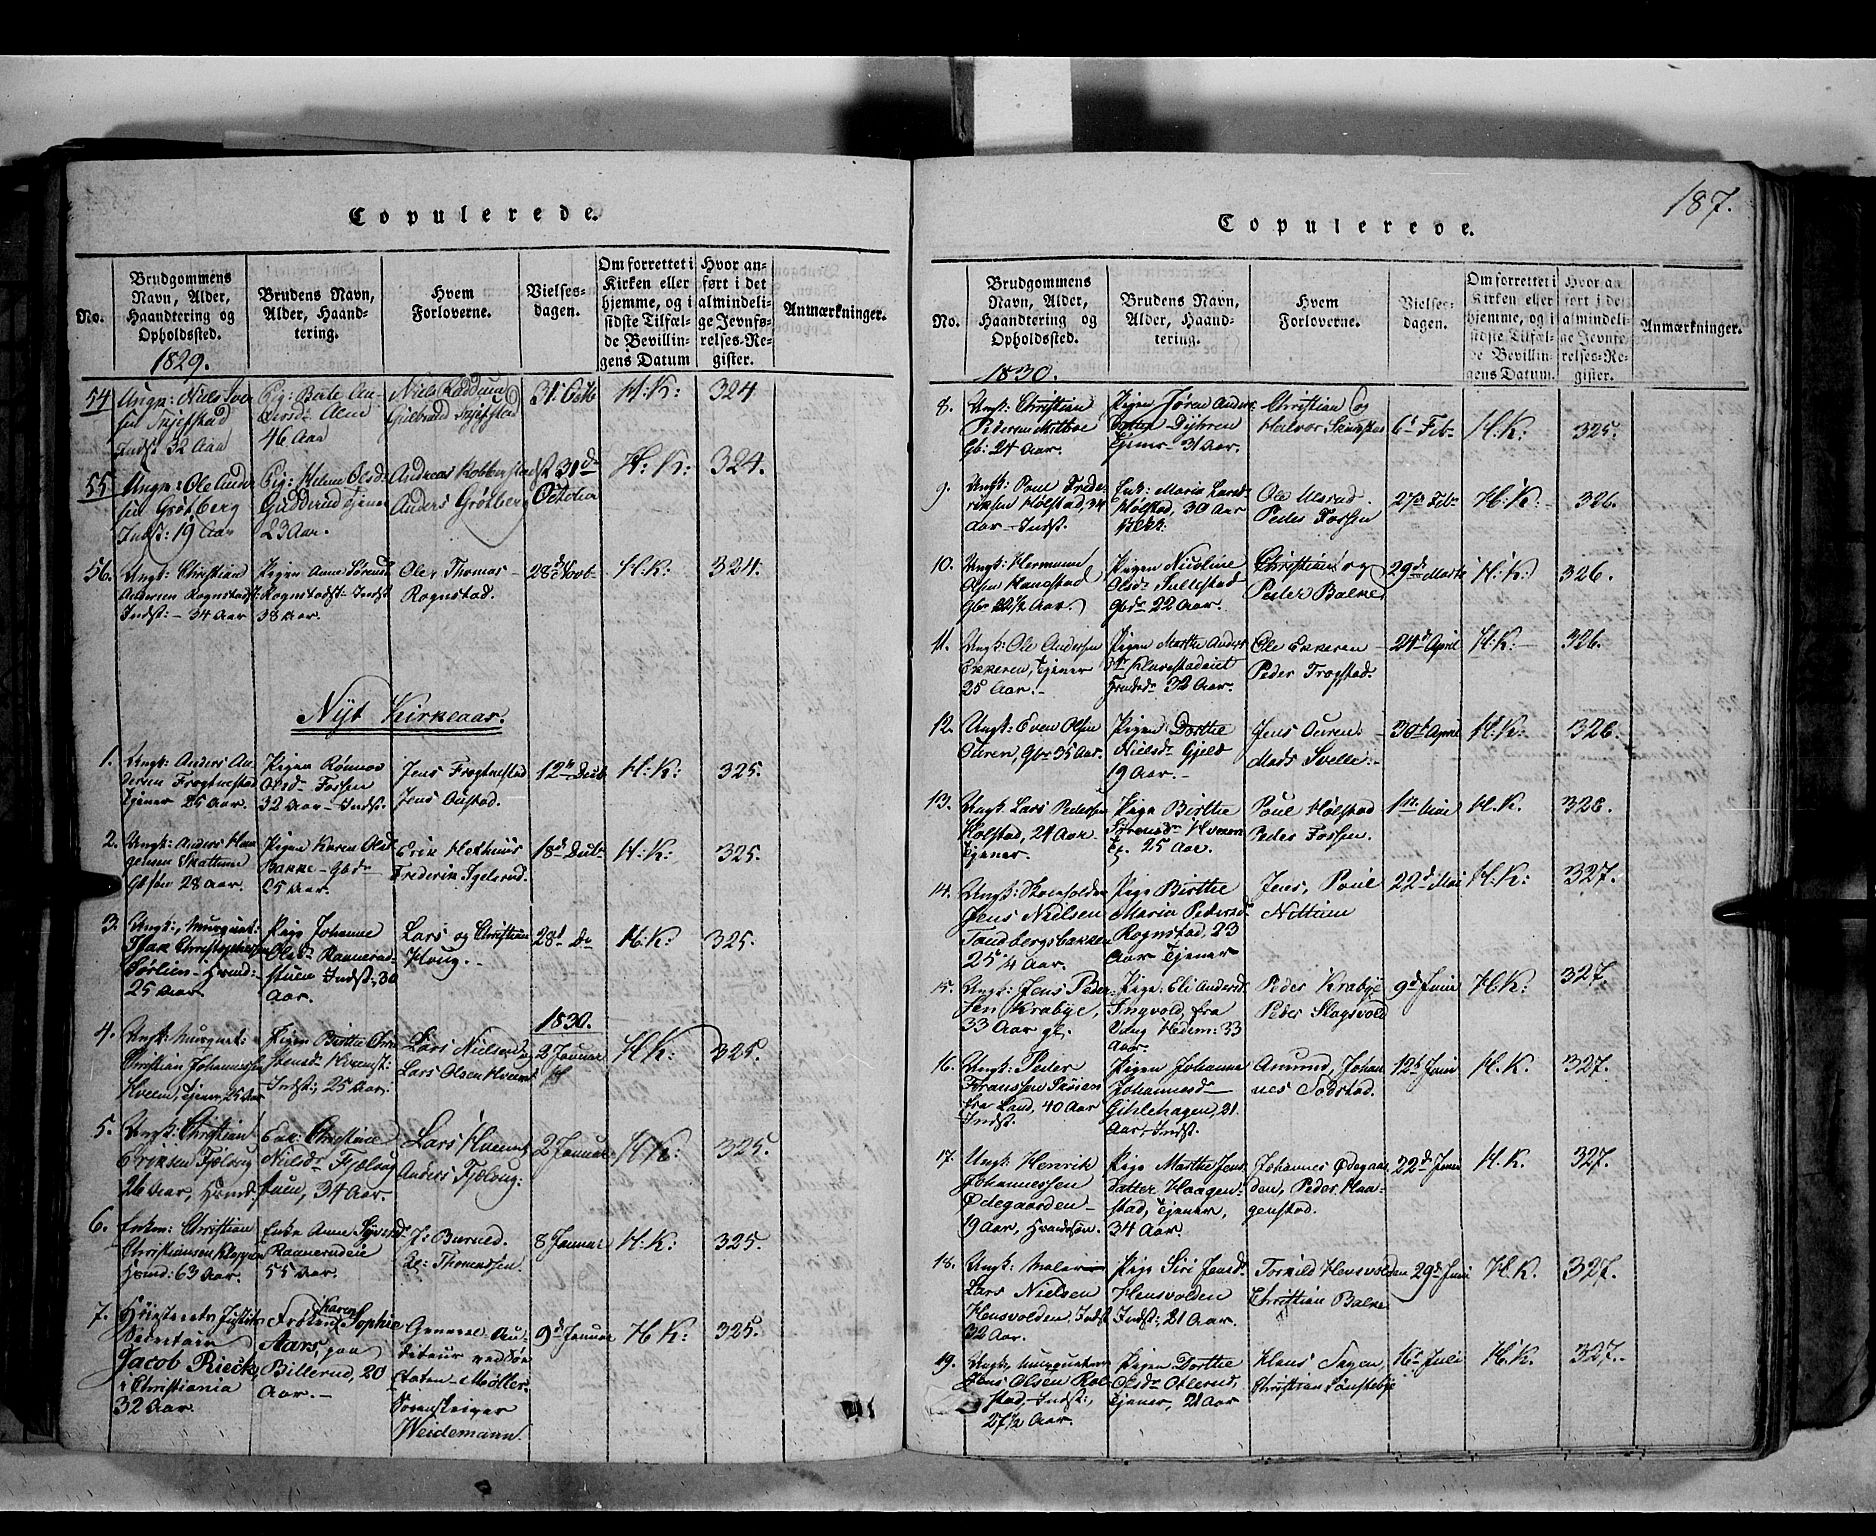 Copulerede.
No.
Brudgommens
Navn, Alder,
Haandtering og
Opholdssted.
1829.
Brudens Navn,
Alder, Haand-
tering.
Hvem
Forloverne.
Vielses-
dagen.
Om forrettet i
Kirken eller
hjemme, og i
sidste Tilfæl-
de Bevillin-
gens Datum
Hvor an-
ført i det
almindeli-
ge Jevnfø-
relses-Re-
gister.
Anmærkninger.
54
Ungk: Niels
Indst 32 Aar
Pig: Berte An-
46 Aar
31 Octb
H: K:
324
55
Ungk: Ole Ander
sen Grøtberg
Indst: 19 Aar
Pig: Helene Olsd:
Gudderud Tjener
23 Aar.
Andreas
Anders Grøtberg
31 d
October
H: K:
324.
56.
Ungk: Christian
Andersen Rognstads
Indst: - 34 Aar
Pigen Anne Sørensd
Rognstads: Indst
38 Aar.
Ole, Thomas
Rognstad.
28 d Novb
H: K:
324.
Nyt Kirkeaar.
1.
Ungk: Anders An
dersen Frogtnestad
Tjener 25 Aar.
Pigen Rønnov
Olsd- Fossen
32 Aar - Indst.
Jens Frogtnestad
Jens Austad.
12 Decb
H: K:
325.
2.
Ungk: Anders Han
sen Skattum
Gbsøn 28 Aar.
Pigen Karen Olsd
Bakke - Gbd-
25 Aar.
Erik
Frederik Egelsrud.
18 d Decb
H: K:
325.
3.
Ungk: Murquet:
Christophersen
Sørlien - Huusd:
25 Aar
Pige Johanne
Olsd
stuen Indst: 30
Aar.
Lars og Christian
Houg.
28 d Do
H: K:
325.
1830.
4.
Ungk: Murquet:
Christian Johannessen
Hveem, Tjener 25 Aar
Pigen Birthe
Indst:, 25 Aar.
Lars Nielsen og
Lars Olsen Hveem
2 Januar
H: K:
325.
5.
Ungk: Christian
Eriksen Fjælsug
26 Aar, Huusd:
Enk: Christine
Nielsd-
34 Aar.
Lars Hveem
Anders
2 Januar
H: K:
325.
6.
Enkem: Christian
Christiansen Kloppen
Huusd: 63 Aar.
Enke Anne Syversd
55 Aar.
J: Burud.
Thomessen.
8 Januar
H: K:
325.
7.
Høiesterets Justits
Secretair
Jacob Rieck
i Christiania
32 Aar.
Frøken Karen Sophie
Aars, paa
Billerud, 20
Aar. -
General Au-
diteur ved
Staten Møller
Sorenskriver
Weidemann.
9 d Januar
H: K:
325.
187.
Copulerede.
No.
Brudgommens
Navn, Alder,
Haandtering og
Opholdssted.
1830.
Brudens Navn,
Alder, Haand-
tering.
Hvem
Forloverne.
Vielses-
dagen.
Om forrettet i
Kirken eller
hjemme, og i
sidste Tilfæl-
de Bevillin-
gens Datum.
Hvor an
ført i det
almindeli-
ge Jevnfø-
relses-Re-
gister.
Anmærkninger.
8.
Ungk: Christian
Pedersen
Gb: 24 Aar.
Pigen Jøren Anders
datter Dyhren
Tjener 31 Aar.
Christian og
Halvor
6 Feb
H: K:
325.
9.
Ungk: Poul Frede
riksen Hølstad, 34
Aar - Indst.
Enk: Maria Larsd
Hølstad, 30 Aar
Ole
Peder Fossen
27 Feb
H: K
326.
10.
Ungk: Hermann
Olsen
Gbr 22 1/2 Aar.
Pigen Nicoline
Olsd- Sullestad
Gbd- 22 Aar.
Christian og
Peder Balke
29 d Marts
H: K:
326.
11.
Ungk: Ole Andersen
Ekkeren, Tjener
25 Aar.
Pigen Marthe Anders
32 Aar.
Ole Ekkeren
Peder Frogstad.
24 April
H: K:
326.
12.
Ungk: Even Olsen
Auren, Gbr 35 Aar.
Pigen Dorthe
Nielsd- Gjeld
19 Aar.
Jens Auren
Mads Svelle.
30 April
H: K:
326.
13.
Ungk: Lars Pedersen
Holstad, 24 Aar
Tjener.
Pige Birthe
Sørensd- Hveem
Tj. 25 Aar.
Poul Hølstad
Peder Fossen.
1 Mai
H. K.
326.
14.
Ungk:
Jens Nielsen
Sandbergsbakken
25 1/4 Aar.
Pige Birthe
Maria Pedersd
Rognstad, 23
Aar Tjener
Jens, Poul
Nittium
22 d Mai
H: K:
327.
15.
Ungk: Jens Peder-
sen Krabye,
33 Aar gl.
Pige Eli Andersd
Ingvold, fra
Vang Hedem: 33
Aar.
Peder Krabye
Peder Slagsvold
9 d Juni
H: K:
327.
16.
Ungk: Peder
Franssen
fra Land, 40 Aar
Indst.
Pigen Johanne
Johannesd-
Gihlehagen, 21
Aar, Indst.
Amund, Johan
nes Sodstad.
12 Juni
H. K.
327.
17.
Ungk: Henrik
Johannessen
Ødegaarden
19 Aar,
Pige Marthe Jens
datter Haagen-
stad, Tjener,
34 Aar.
Johannes Ødegaar
den, Peder Haa-
genstad.
22 d Juni
H. K.
327.
18.
Ungk: Maler
Lars Nielsen
Hensvolden, Indst
32 Aar.
Pige Siri Jensd
Hensvolden
Indst: 21 Aar.
Tornild Hensvolden
Christian Balke
29 d Juni
H. K.
327.
19.
Ungk, Murquetern
Jens Olsen Kol
stad, Indst:,
27 1/2 Aar.
Pigen Dorthe
Olsd- Oterud,
Tjener, 21 Aar
Hans Sagen
Christian Sønsteby
16 Juli
H. K.
327.